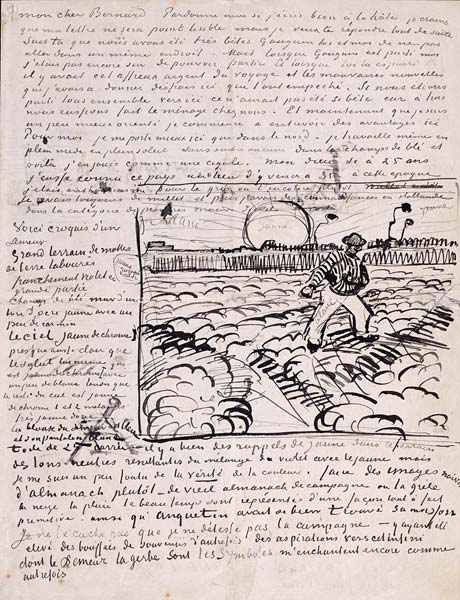 mon cher Bernard Pardonne moi si j'écris bien à la hâte je crains
que ma lettre ne sera point lisible mais je veux te répondre tout de suite
Sais tu que nous avons été très bêtes Gauguin toi et moi de ne pas
aller dans un même endroit. Mais lorsque Gauguin est parti moi
j'étais pas encore sûr de pouvoir partir et lorsque toi tu es parti
il y avait cet affreux argent du voyage et les mauvaises nouvelles
que j'avais à donner des frais ici qui t'ont empêché. Si nous étions
parti tous ensemble vers ici ce n'aurait pas été si bête car à trois
nous eussions fait le ménage chez nous. Et maintenant que je suis
un peu mieux orienté je commence à entrevoir des avantages ici
Pour moi je me porte mieux ici que dans le nord – je travaille même en
plein midi en plein soleil sans ombre aucune dans les champs de blé et
voilà j'en jouis comme une cigale. mon dieu si à 25 ans
j'eusse connu ce pays au lieu d'y venir à 35 à cette époque
j'étais enthousiasmé pour le gris ou l'incolore plutôt
je revais toujours de millet et puis j'avais des connaissances en Hollande
dans la catégorie de peintres mauve
jaune
jaune
Voici croquis d'un
semeur
Grand terrain de mottes
de terre labourée
franchement violet en
grande partie
champ de blé mûr d'un
ton d'ocre jaune avec un
peu de carmin
Le ciel jaune de chrome 1
presque aussi clair que
le soleil lui même qui
est jaune de chrome 1 avec
un peu de blanc tandis que
le reste du ciel est jaune
de chrome 1 et 2 mélangés
très jaune donc
la blouse du semeur est bleue
et son pantalon blanc
toile de 25 carrée il y a bien des rappels de jaune dans le terrain
des tons neutres resultants du mélange du violet avec le jaune mais
je me suis un peu foutu de la vérité de la couleur. faire des images naives
d'almanach plutôt – de vieil almanach de campagne où la grêle
la neige la pluie le beau temps sont représentés d'une façon tout à fait
primitive. ainsi qu'Anquetin avait si bien trouvé sa moisson
Je ne te cache pas que je ne déteste pas la campagne – y ayant été
élevé des bouffées de souvenirs d'autrefois des aspirations vers cet infini
dont le Semeur la gerbe sont les symboles m'enchantent encore comme
autrefois